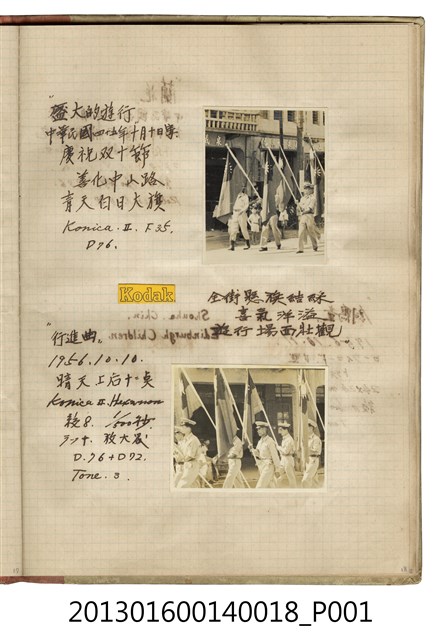 "盛大的遊行"
中華民國四十五年十月十日
慶祝双十節
善化中山路
青天白日大旗
Konica. II. F35.
D76.
Kodak
全街懸旗結彩
喜氣洋溢
遊行場面壯觀
"行進曲"
1956.10.10.
晴天上后十点
Konica II Hexanon
絞8. 1/500秒.
D.76+D72.
Tone. 3.
201301600140018_P001